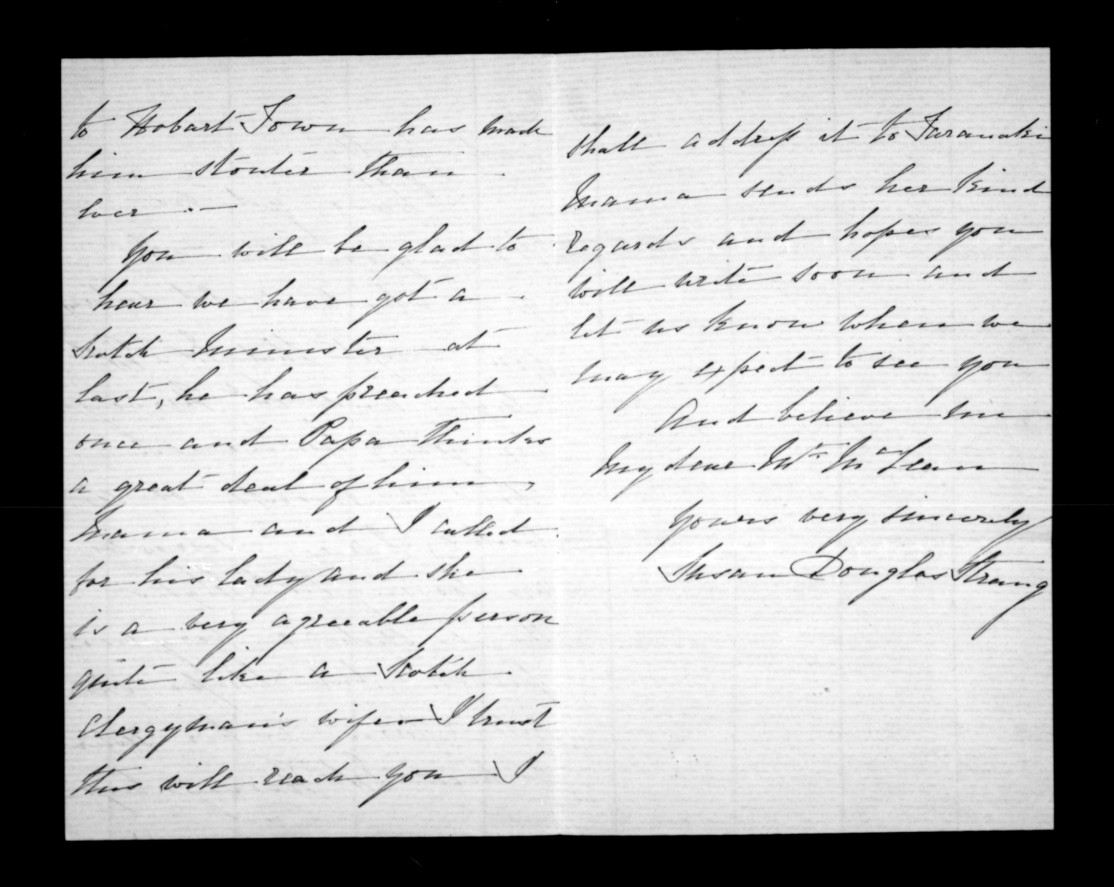 to Hobart Town has made
him stouter than
ever . —
You will be glad to
hear we have got a
Scotch Minister at
last, he has preached
once and Papa thinks
a great deal of him,
Mama and I called
for his lady and she
is a very agreeable person
quite like a Scotch
Clergyman's wife I trust
this will reach you I
shall address it to Taranaki
Mama sends her kind
regards and hopes you
will write soon and
let us know when we
may expect to see you
And believe me
My dear Mr. McLean
yours very sincerely
Susan Douglas Strang